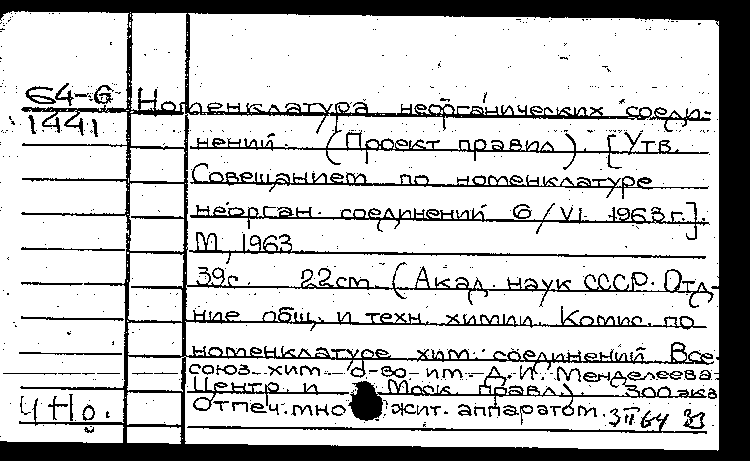 64-6
1441
Номенклатура неорганических соеди-
нений. (Проект правил). [Утв.
Совещанием по номенклатуре
неорган. соединений 6/VI 1963 г.].
М, 1963
39с. 22см. (Акад. наук СССР. Отд-
ние общ. и техн. химии. Комис. по
номенклатуре хим. соединений Все-
союз. хим. о-во им. Д.И. Менделеева.
Центр. и Моск. правл). 300 экз
Отпеч. мно жит. аппаратом. 3 II 64